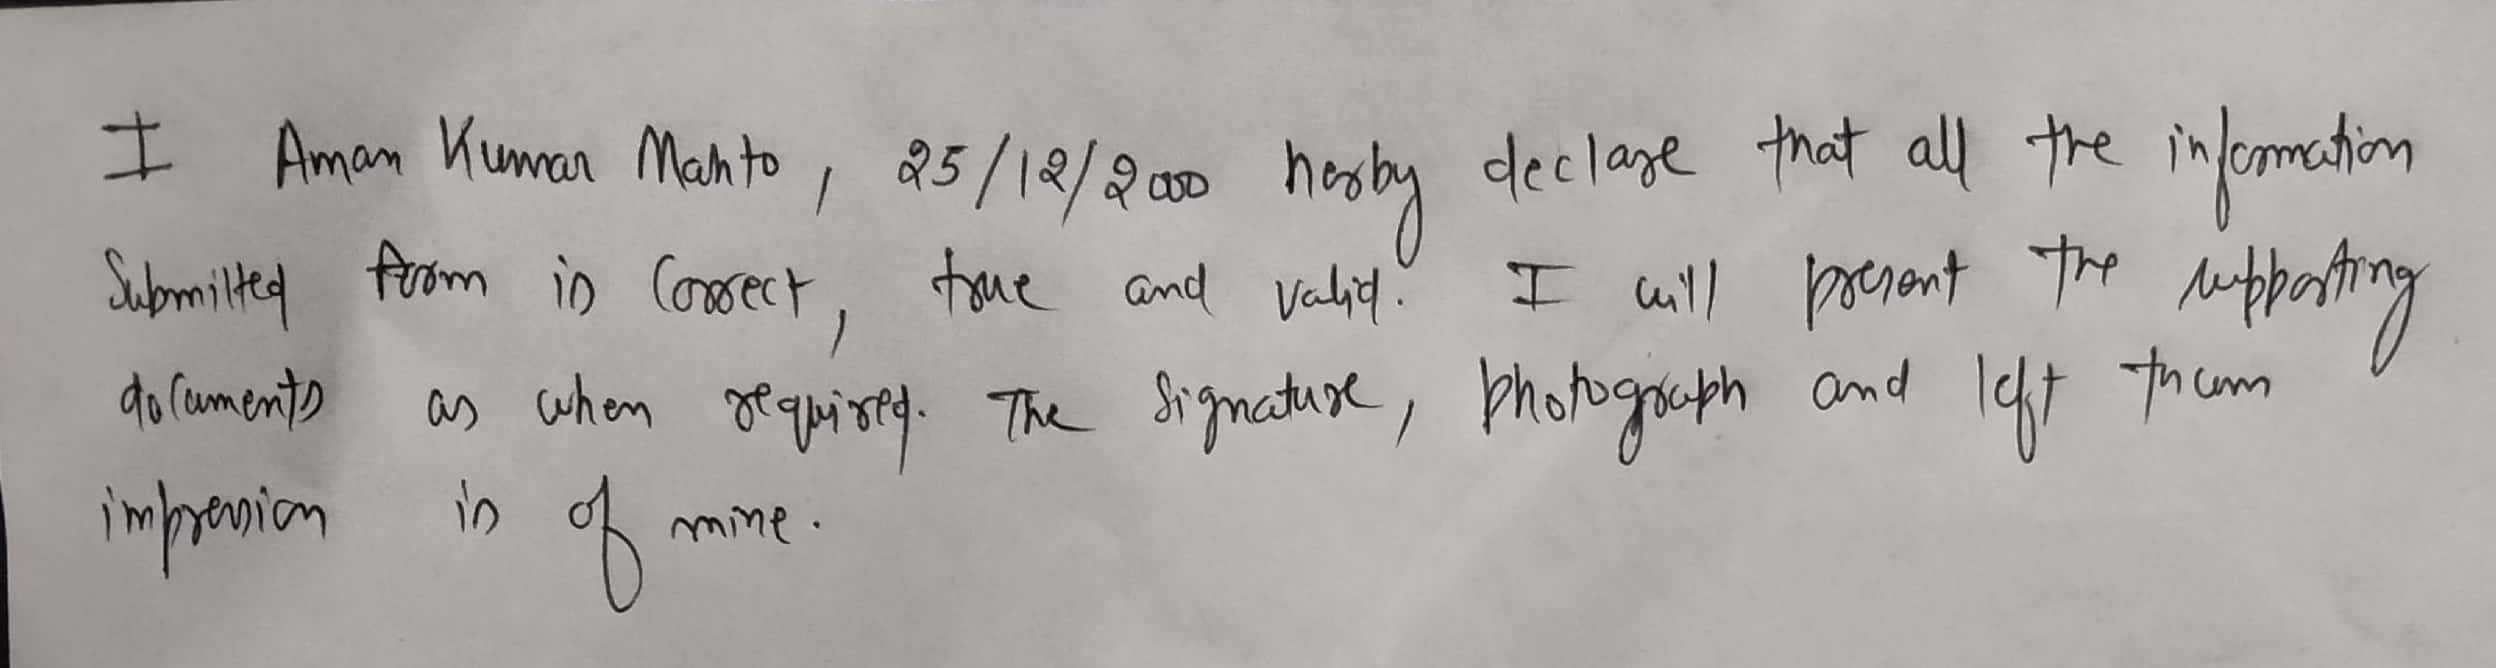 I Aman Kumar Mahto, 25/12/2000 herby declare that all the information
Submitted form is Correct, true and valid. I will present the supporting
documents as when required. The Signature, photograph and left thum
impression is of mine.